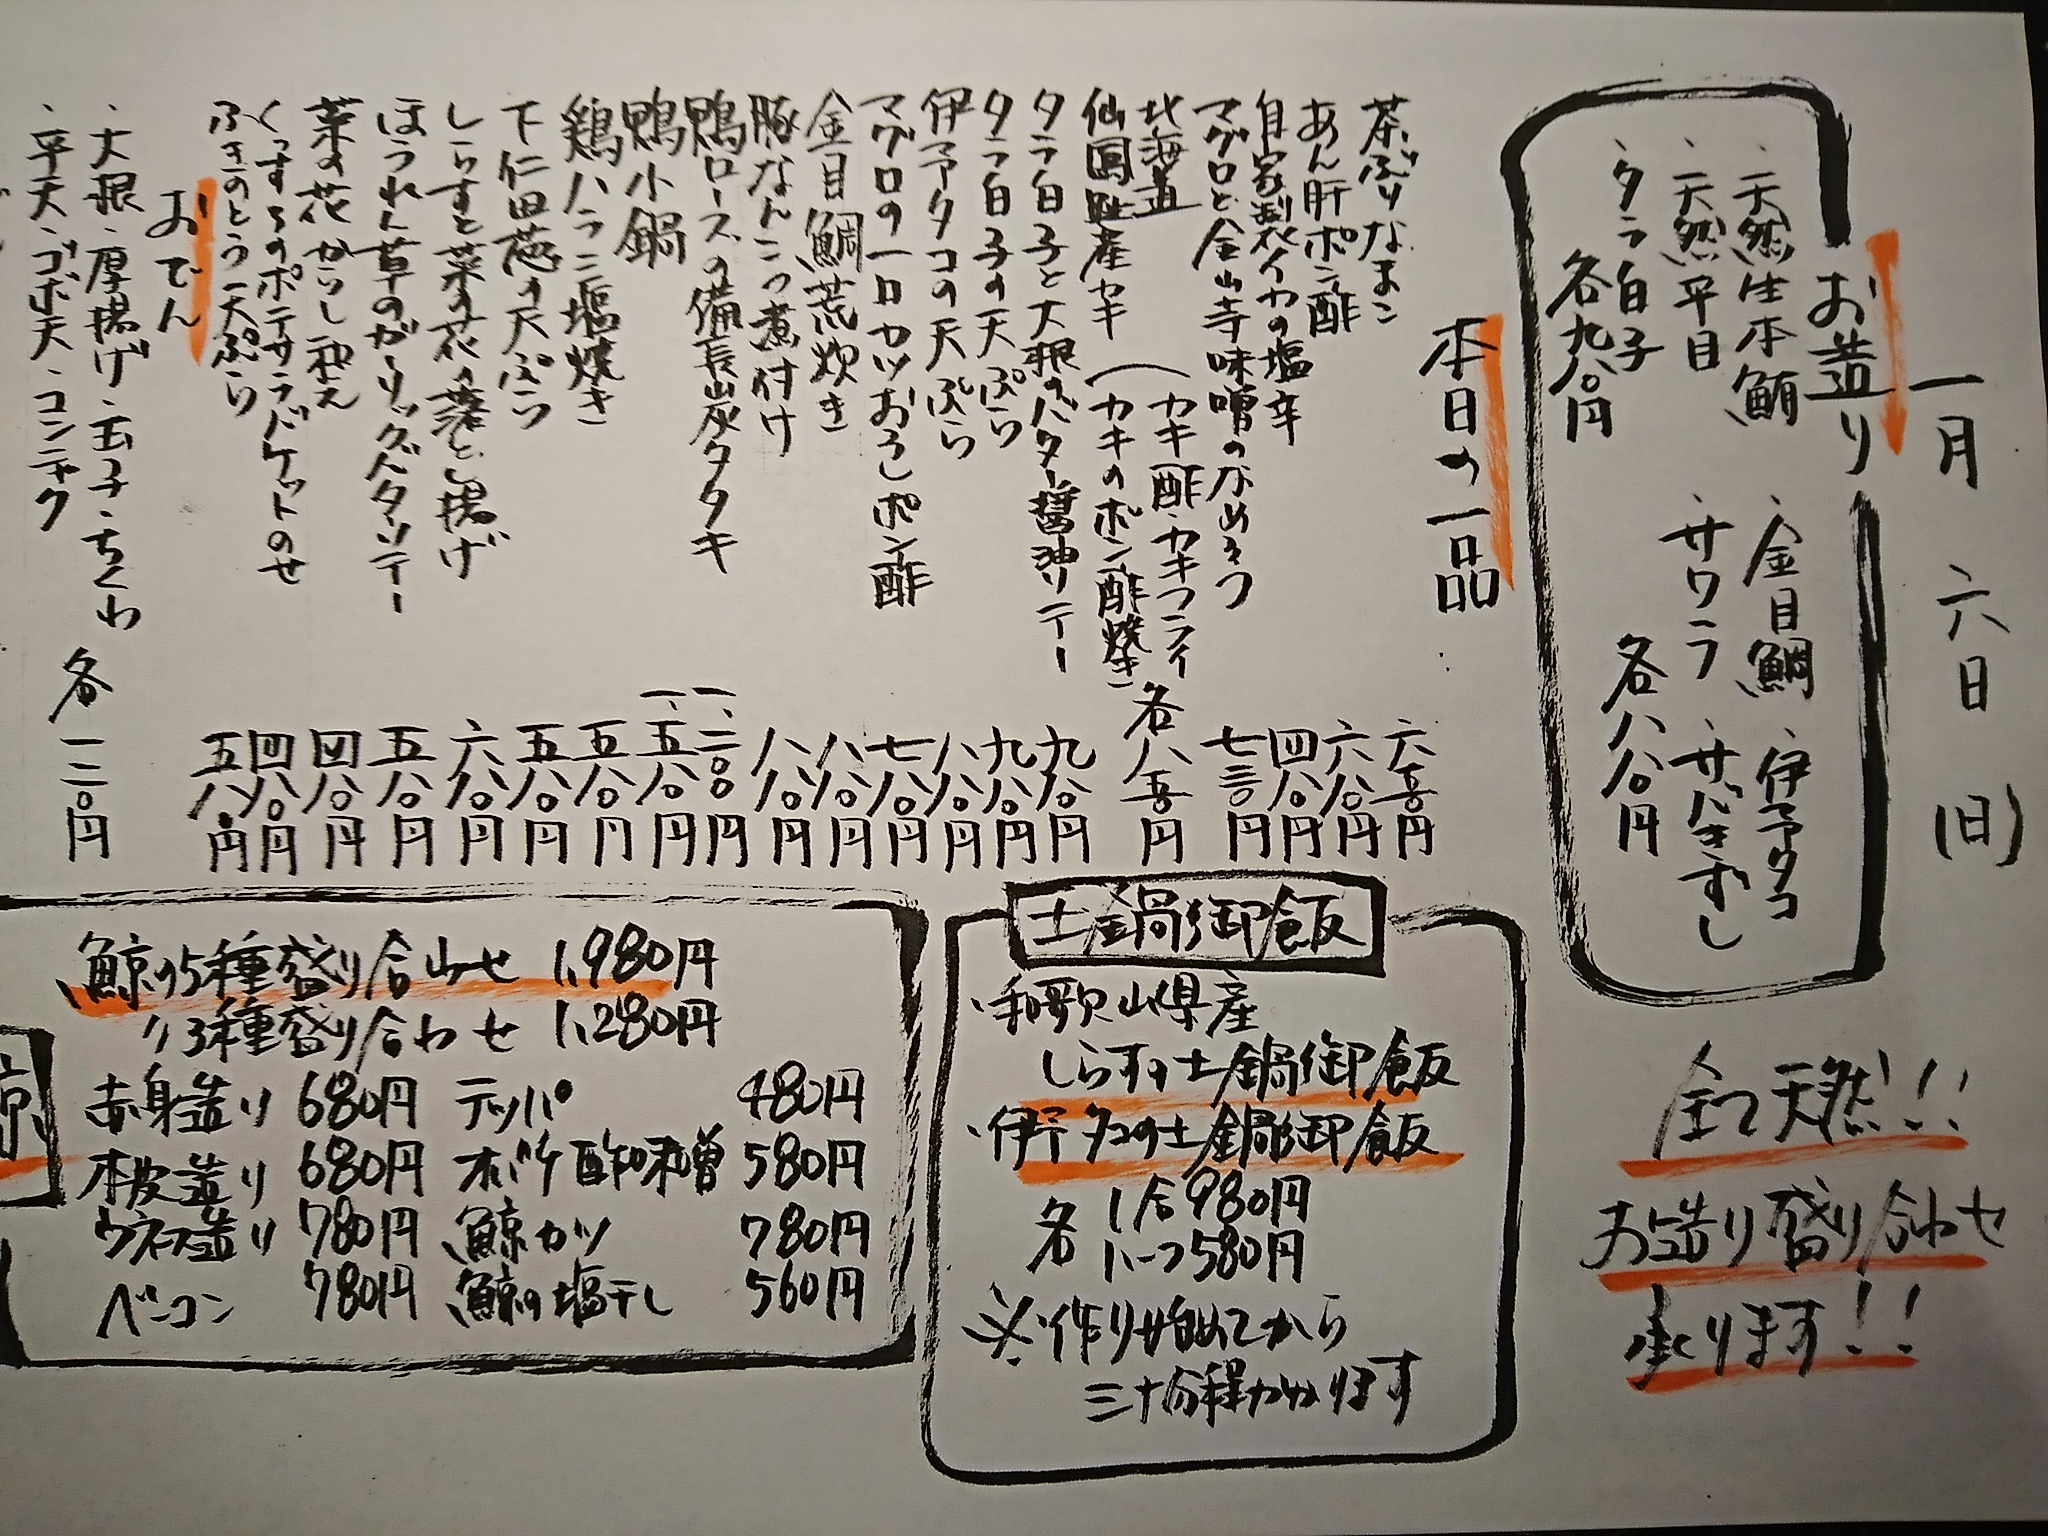 一月六日(日)
お造り
・天然生本鮪
・天然平目
・タラ白子
各九八〇円
・金目鯛・伊予タコ
・サワラ・サバきずし
各八八〇円
全て天然!!
お造り盛り合わせ
承ります!!
本日の一品
茶ぶりなまこ 六五〇円
あん肝ポン酢 六八〇円
自家製イカの塩辛 四八〇円
マグロと金山寺味噌のなめろう 七三〇円
北海道
仙鳳趾産カキ
(カキ酢・カキフライ
(カキのポン酢焼き)
各八五〇円
タラ白子と大根のバター醤油ソテー 九八〇円
タラ白子の天ぷら 九八〇円
伊予タコの天ぷら 八八〇円
マグロの一口カツおろしポン酢 七八〇円
金目鯛荒炊き 八八〇円
豚なんこつ煮付け 八八〇円
鴨ロースの備長炭タタキ 一、二〇〇円
鴨小鍋 一、五八〇円
鶏ハラミ塩焼き 五八〇円
下仁田葱の天ぷら 五八〇円
しらすと菜の花の落とし揚げ 六八〇円
ほうれん草のガーリックバターソテー 五八〇円
菜の花からし和え 四八〇円
くっするのポテサラバケットのせ 四八〇円
ふきのとう天ぷら 五八〇円
おでん
・大根・厚揚げ・玉子・ちくわ
・平天・ゴボ天・コンニャク
各一二〇円
土鍋御飯
・和歌山県産
しらすの土鍋御飯
・伊予タコの土鍋御飯
各 1合980円
ハーフ580円
※作り始めてから
三十分程かかります
鯨の5種盛り合わせ 1,980円
〃3種盛り合わせ 1,280円
赤身造り 680円 テッパ 480円
本皮造り 680円 オバケ酢味噌 580円
ウネス造り 780円 鯨カツ 780円
ベーコン 780円 鯨の塩干し 560円